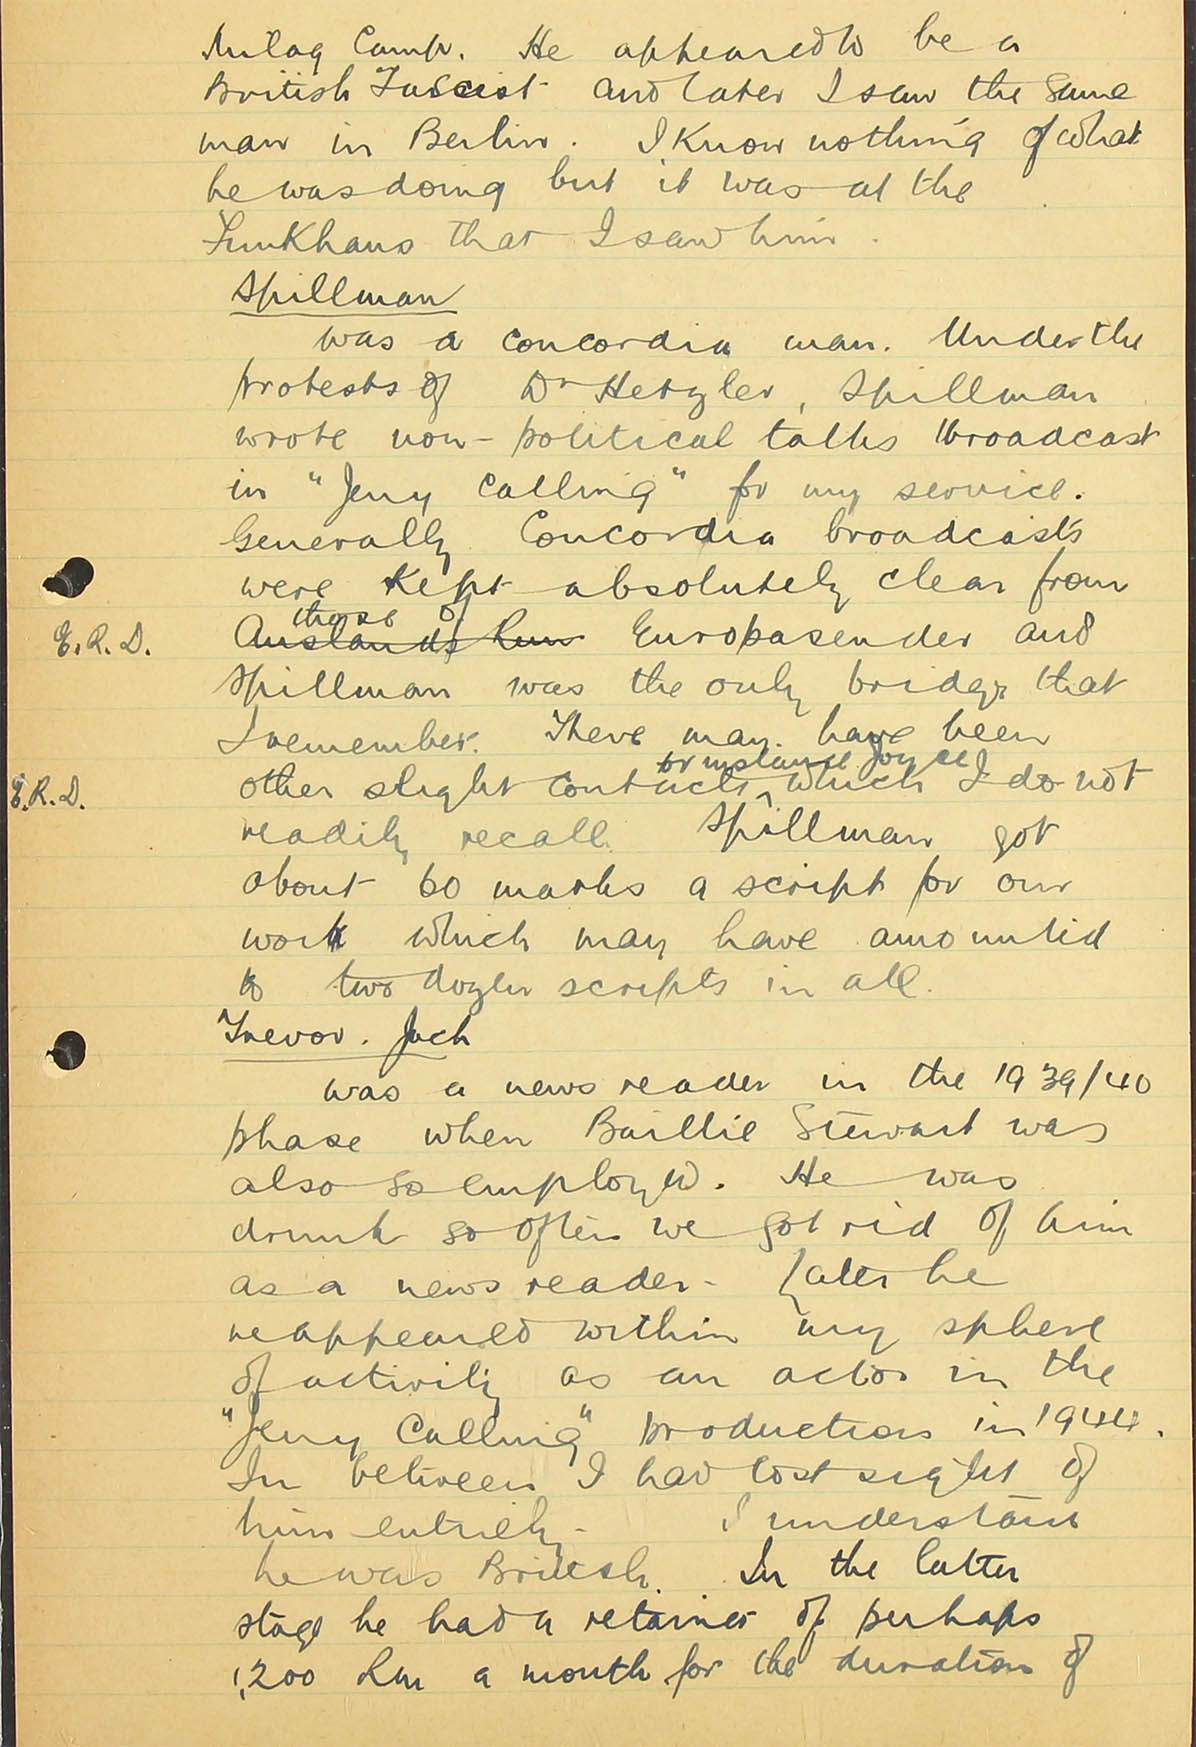 Milag Camp. He appeared to be a
British Fascist and later I saw the same
man in Berlin. I know nothing of what
he was doing but it was at the
Funkhaus that I saw him.
Spillman
was a Concordia man. Under the
protests of Dr Hetzler, Spillman
wrote non-political talks broadcast
in "Jerry Calling" for my service.
Generally Concordia broadcasts
were kept absolutely clear from
those of
E.R.D. Auslands Run Europasender and
Spillman was the only bridge that
I remember. There may have been
for instance Joyce
E.R.D. other slight contacts, which I do not
readily recall. Spillman got
about 60 marks a script for our
work which may have amounted
to two dozen scripts in all.
Trevor. Jack
was a news reader in the 1939/40
phase when Baillie Stewart was
also so employed. He was
drunk so often we got rid of him
as a news reader - Later he
reappeared within my sphere
of activity as an actor in the
"Jerry Calling" production in 1944.
In between I had lost sight of
him entirely - I understand
he was British. In the latter
stage he had a retainer of perhaps
1,200 Rm a month for the duration of